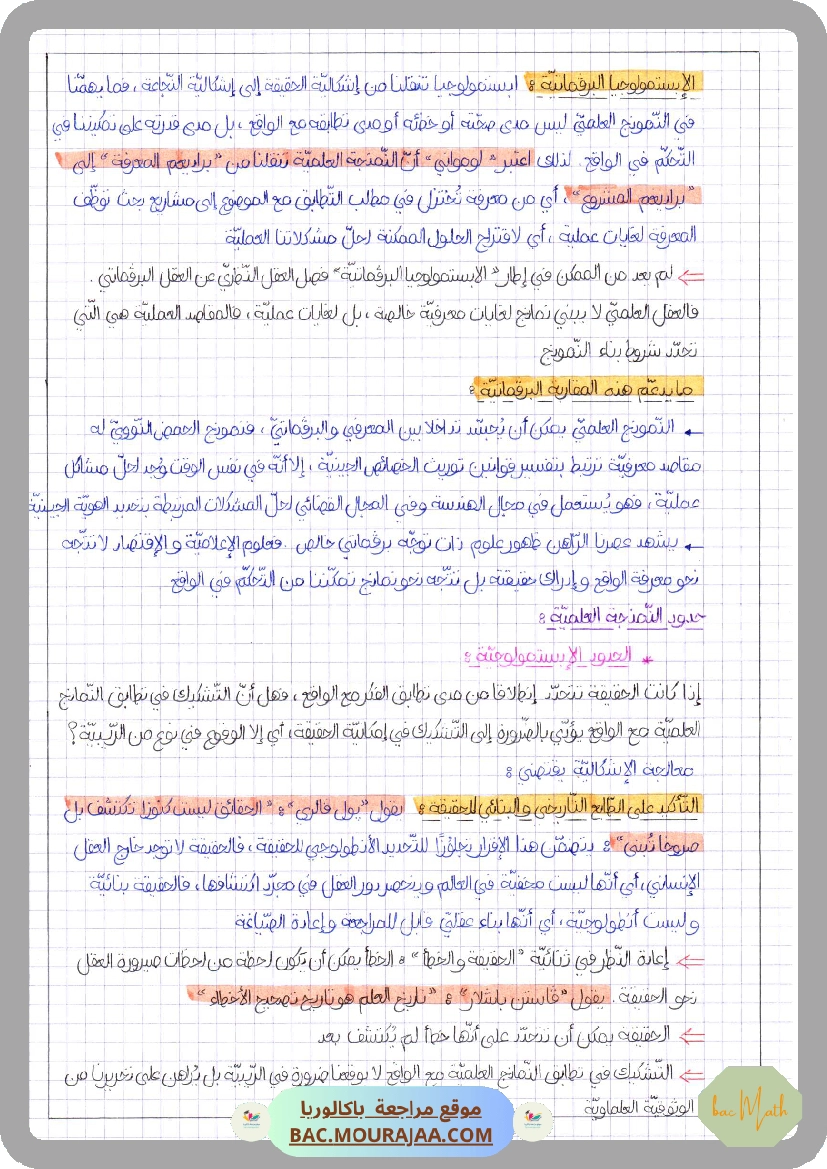 الإبستمولوجيا البرقماتيّة : ابستمولوجيا تنقلنا من إشكاليّة الحقيقة إلى إشكاليّة النّجاعة ، فما يهمّنا
في النّموذج العلميّ ليس مدى صحّته أو خطئه أو مدى تطابقه مع الواقع ، بل مدى قدرته على تمكيننا في
التّحكّم في الواقع . لذلك اعتبر " لومواني " أنّ النّمذجة العلميّة تنقلنا من " براديغم المعرفة " إلى
" براديغم المشروع " ، أي من معرفة تُختزل في مطلب التّطابق مع الموضوع إلى مشاريع بحث توظّف
المعرفة لغايات عملية ، أي لاقتراح الحلول الممكنة لحلّ مشكلاتنا العمليّة
⇐ لم يعد من الممكن في إطار " الابستمولوجيا البرقماتيّة " فصل العقل النّظريّ عن العقل البرقماتي .
فالعقل العلميّ لا يبني نماذج لغايات معرفيّة خالصة ، بل لغايات عمليّة ، فالمقاصد العمليّة هي الّتي
تحدّد شروط بناء النّموذج
ما يدعّم هذه المقاربة البرقماتيّة :
← النّموذج العلميّ يمكن أن يُجسّد تداخلا بين المعرفي والبرقماتيّ ، فنموذج الحمض النّوويّ له
مقاصد معرفيّة ترتبط بتفسير قوانين توريث الخصائص الجينيّة ، إلا أنّه في نفس الوقت وُجد لحلّ مشاكل
عمليّة ، فهو يُستعمل في مجال الهندسة وفي المجال القضائي لحلّ المشكلات المرتبطة بتحديد الهويّة الجينيّة
← يشهد عصرنا الرّاهن ظهور علوم ذات توجّه برقماتي خالص . فعلوم الإعلاميّة و الإقتصاد لا تتّجه
نحو معرفة الواقع و إدراك حقيقته بل تتّجه نحو نماذج تمكّننا من التّحكّم في الواقع
حدود النّمذجة العلميّة :
* الحدود الإبستمولوجيّة :
إذا كانت الحقيقة تتحدّد إنطلاقا من مدى تطابق الفكر مع الواقع ، فهل أنّ التّشكيك في تطابق النّماذج
العلميّة مع الواقع يؤدّي بالضّرورة إلى التّشكيك في إمكانيّة الحقيقة ، أي إلا الوقوع في نوع من الرّيبيّة ؟
معالجة الإشكاليّة يقتضي :
التّأكيد على الطّابع التّاريخي و البنائي للحقيقة : يقول " بول فاليري " : " الحقائق ليست كنوزا تكتشف بل
صروحا تُبنى " : يتضمّن هذا الإقرار تجاوُزًا للتّحديد الأنطولوجي للحقيقة ، فالحقيقة لا توجد خارج العقل
الإنساني ، أي أنّها ليست مخفيّة في العالم و ينحصر دور العقل في مجرّد اكتشافها ، فالحقيقة بنائيّة
وليست أنطولوجيّة ، أي أنّها بناء عقليّ قابل للمراجعة و إعادة الصّياغة
⇐ إعادة النّظر في ثنائيّة " الحقيقة و الخطأ " : الخطأ يمكن أن يكون لحظة من لحظات صيرورة العقل
نحو الحقيقة . يقول " قاستن باشلار " : " تاريخ العلم هو تاريخ تصحيح الأخطاء "
⇐ الحقيقة يمكن أن تتحدّد على أنّها خطأ لم يُكتشف بعد
⇐ التّشكيك في تطابق النّماذج العلميّة مع الواقع لا يوقعنا ضرورة في الرّيبيّة بل يُراهن على تحريرنا من
الوثوقيّة العلماويّة
bac Math
موقع مراجعة باكالوريا
BAC.MOURAJAA.COM